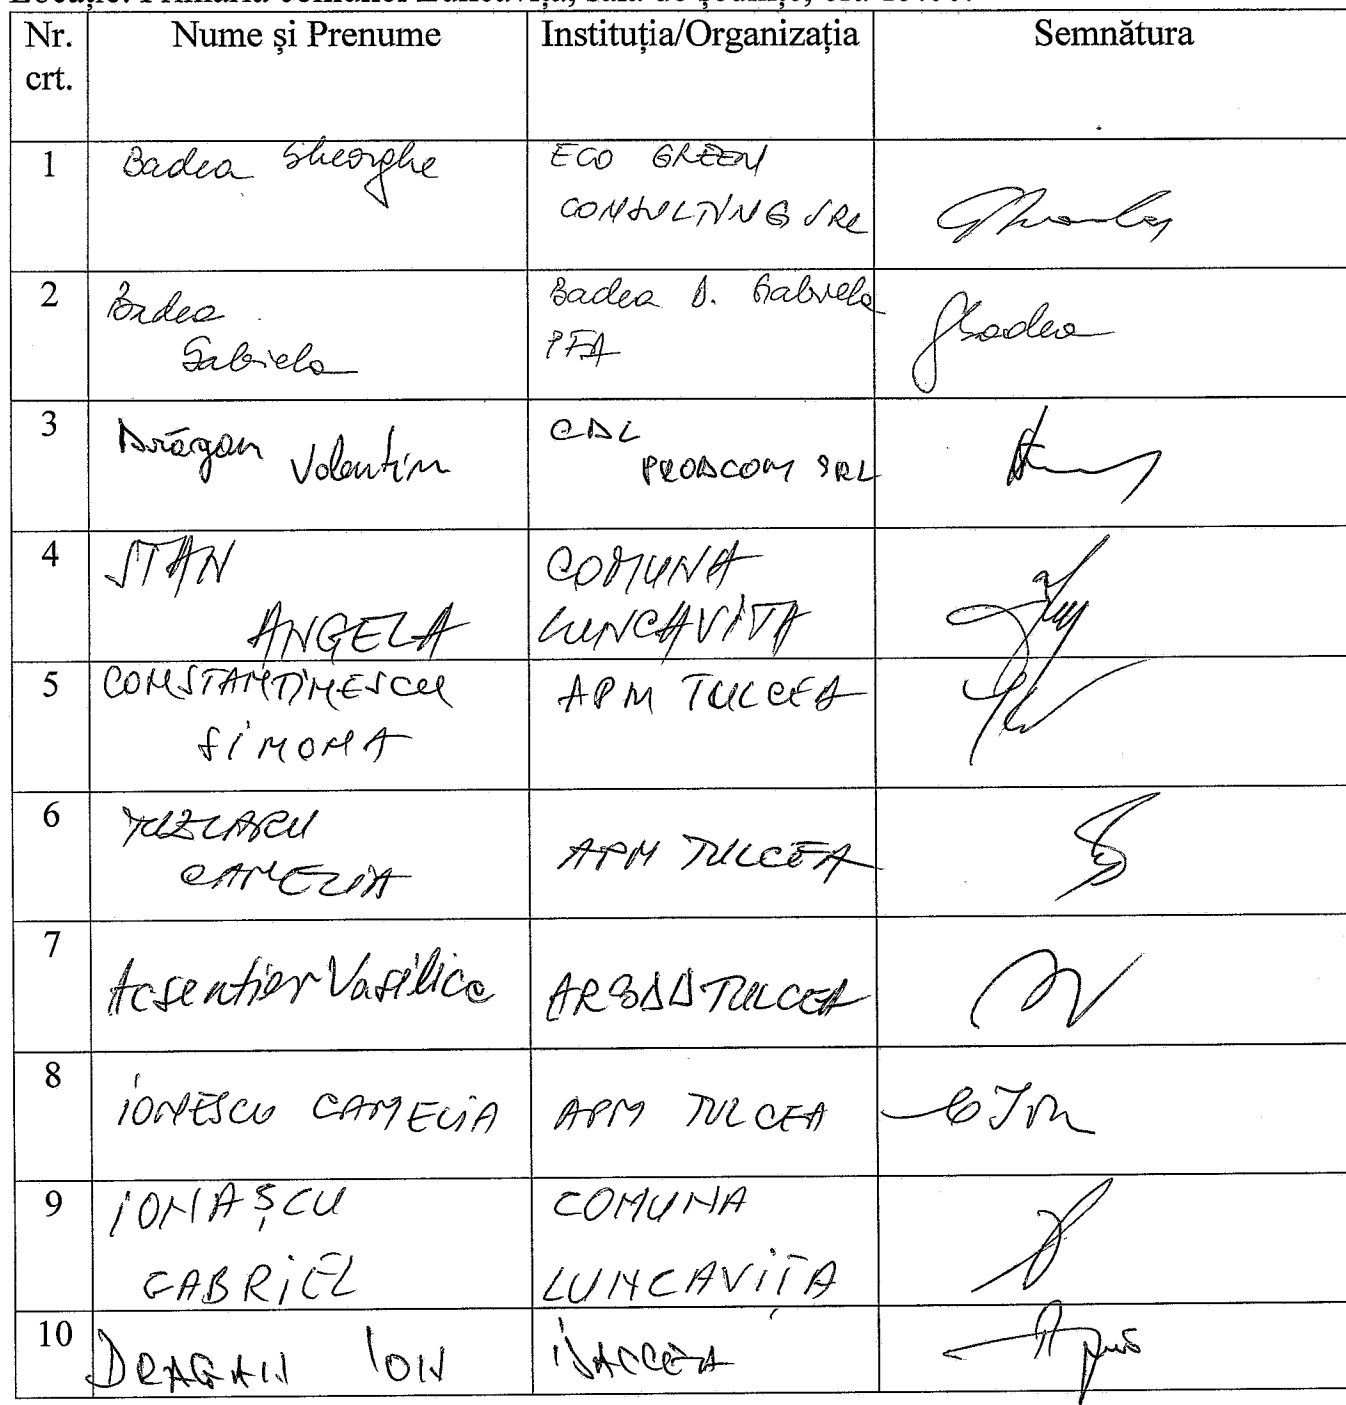 Nr. crt. Nume și Prenume Instituția/Organizația Semnătura
1 Badea Gheorghe ECO GREEN
CONSULTING SRL
2 Badea Gabriela Badea D. Gabriela
PFA
3 Drăgan Valentin CDL
PRODCOM SRL
4 STAN ANGELA COMUNA
LUNCAVITA
5 CONSTANTINESCU SIMONA APM TULCEA
6 CAMELIA APM TULCEA
7 Vasilica TULCEA
8 IONESCU CAMELIA APM TULCEA
9 IONAȘCU GABRIEL COMUNA
LUNCAVIȚA
10 DRAGAN ION ISACCEA